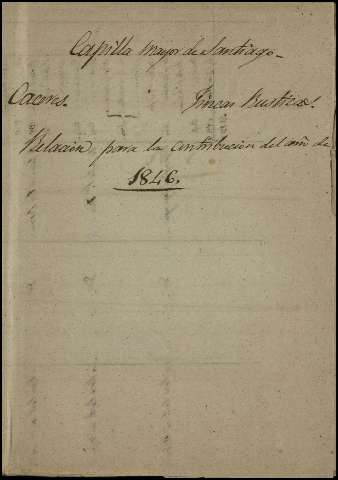 Capilla mayor de Santiago.
Caceres. Fincas Rusticas.
Relacion para la contribucion del año de
1846.